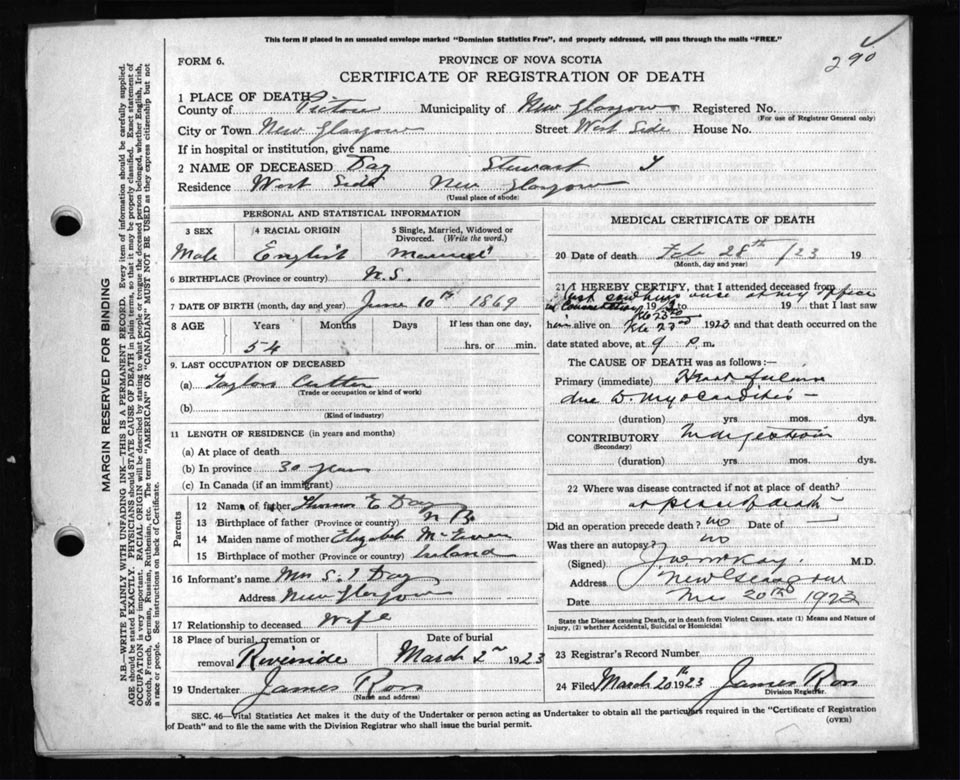 This form if placed in an unsealed envelope marked "Dominion Statistics Free", and properly addressed, will pass through the mails "FREE."
290
FORM 6.
PROVINCE OF NOVA SCOTIA
CERTIFICATE OF REGISTRATION OF DEATH
1 PLACE OF DEATH
County of Pictou Municipality of New Glasgow Registered No.
(For use of Registrar General only)
City or Town New Glasgow Street West Side House No.
If in hospital or institution, give name
2 NAME OF DECEASED Day Stewart
Residence West Side New Glasgow
(Usual place of abode)
PERSONAL AND STATISTICAL INFORMATION
3 SEX 4 RACIAL ORIGIN 5 Single, Married, Widowed or Divorced. (Write the word.)
Male English Married
6 BIRTHPLACE (Province or country) N.S.
7 DATE OF BIRTH (month, day and year) June 10th 1869
8 AGE Years Months Days If less than one day,
54 hrs. or min.
9. LAST OCCUPATION OF DECEASED
(a) Taylor Cutter
(Trade or occupation or kind of work)
(b)
(Kind of industry)
11 LENGTH OF RESIDENCE (in years and months)
(a) At place of death
(b) In province 30 years
(c) In Canada (if an immigrant)
Parents
12 Name of father Thomas E Day
13 Birthplace of father (Province or country) N B.
14 Maiden name of mother Elizabeth McEwen
15 Birthplace of mother (Province or country) Ireland
16 Informant's name Mrs S. I Day
Address New Glasgow
17 Relationship to deceased Wife
18 Place of burial, cremation or removal Riverside Date of burial March 2nd 1923
19 Undertaker James Ross
(Name and address)
MEDICAL CERTIFICATE OF DEATH
20 Date of death Feb 28th /23 19
(Month, day and year)
21 I HEREBY CERTIFY, that I attended deceased from
last seen office
19 to 19 that I last saw
him alive on Feb 23rd 1923 and that death occurred on the
date stated above, at 9 P. m.
The CAUSE OF DEATH was as follows:—
Primary (immediate) Heart failure
due to Myocarditis
(duration) yrs mos. dys.
CONTRIBUTORY Indigestion
(Secondary)
(duration) yrs mos. dys.
22 Where was disease contracted if not at place of death?
at place of death
Did an operation precede death? no Date of
Was there an autopsy? no
(Signed) M.D.
Address New Glasgow
Date 20th 1923
State the Disease causing Death, or in death from Violent Causes, state (1) Means and Nature of Injury, (2) whether Accidental, Suicidal or Homicidal
23 Registrar's Record Number
24 Filed March 20th 1923 James Ross
Division Registrar.
SEC. 46—Vital Statistics Act makes it the duty of the Undertaker or person acting as Undertaker to obtain all the particulars required in the "Certificate of Registration
of Death" and to file the same with the Division Registrar who shall issue the burial permit.
(OVER)
MARGIN RESERVED FOR BINDING
N.B.—WRITE PLAINLY WITH UNFADING INK—THIS IS A PERMANENT RECORD. Every item of information should be carefully supplied.
AGE should be stated EXACTLY. PHYSICIANS should STATE CAUSE OF DEATH in plain terms, so that it may be properly classified. Exact statement of
OCCUPATION is very important. RACIAL ORIGIN will be described by stating to what people or tongue the deceased person belonged, whether English, Irish,
Scotch, French, German, Russian, Ruthenian, etc. The terms "AMERICAN" OR "CANADIAN" MUST NOT BE USED as they express citizenship but not
a race or people. See instructions on back of Certificate.